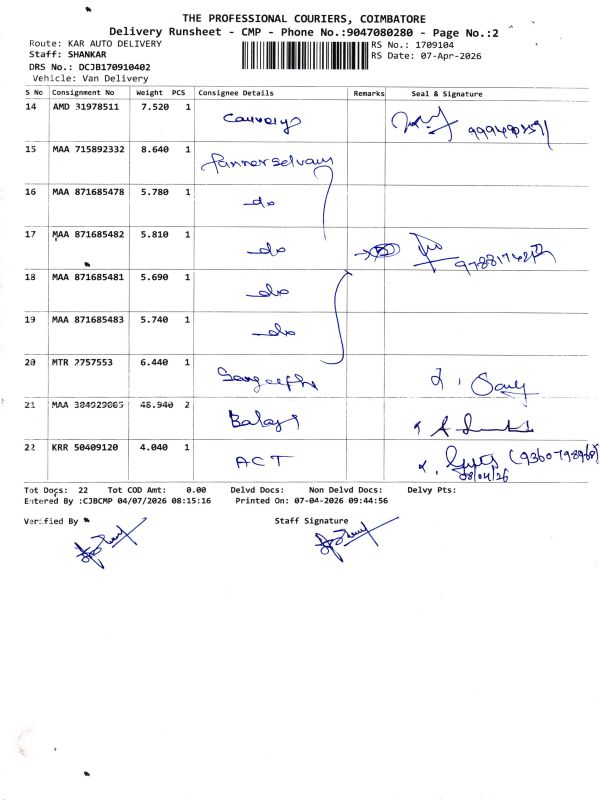 THE PROFESSIONAL COURIERS, COIMBATORE
Delivery Runsheet - CMP - Phone No.:9047080280 - Page No.:2
Route: KAR AUTO DELIVERY
RS No.: 1709104
Staff: SHANKAR
RS Date: 07-Apr-2026
DRS No.: DCJB170910402
Vehicle: Van Delivery
S No Consignment No Weight PCS Consignee Details Remarks Seal & Signature
14 AMD 31978511 7.520 1 Cauvery
15 MAA 715892332 8.640 1 Pannerselvam
16 MAA 871685478 5.780 1 -do
17 MAA 871685482 5.810 1 -do
18 MAA 871685481 5.690 1 -do
19 MAA 871685483 5.740 1 -do
20 MTR 2757553 6.440 1 Sangeetha
21 MAA 304929065 48.940 2 Balaji
22 KRR 50409120 4.040 1 ACT (9360798968)
08/04/26
Tot Docs: 22 Tot COD Amt: 0.00 Delvd Docs: Non Delvd Docs: Delvy Pts:
Entered By :CJBCMP 04/07/2026 08:15:16 Printed On: 07-04-2026 09:44:56
Verified By Staff Signature